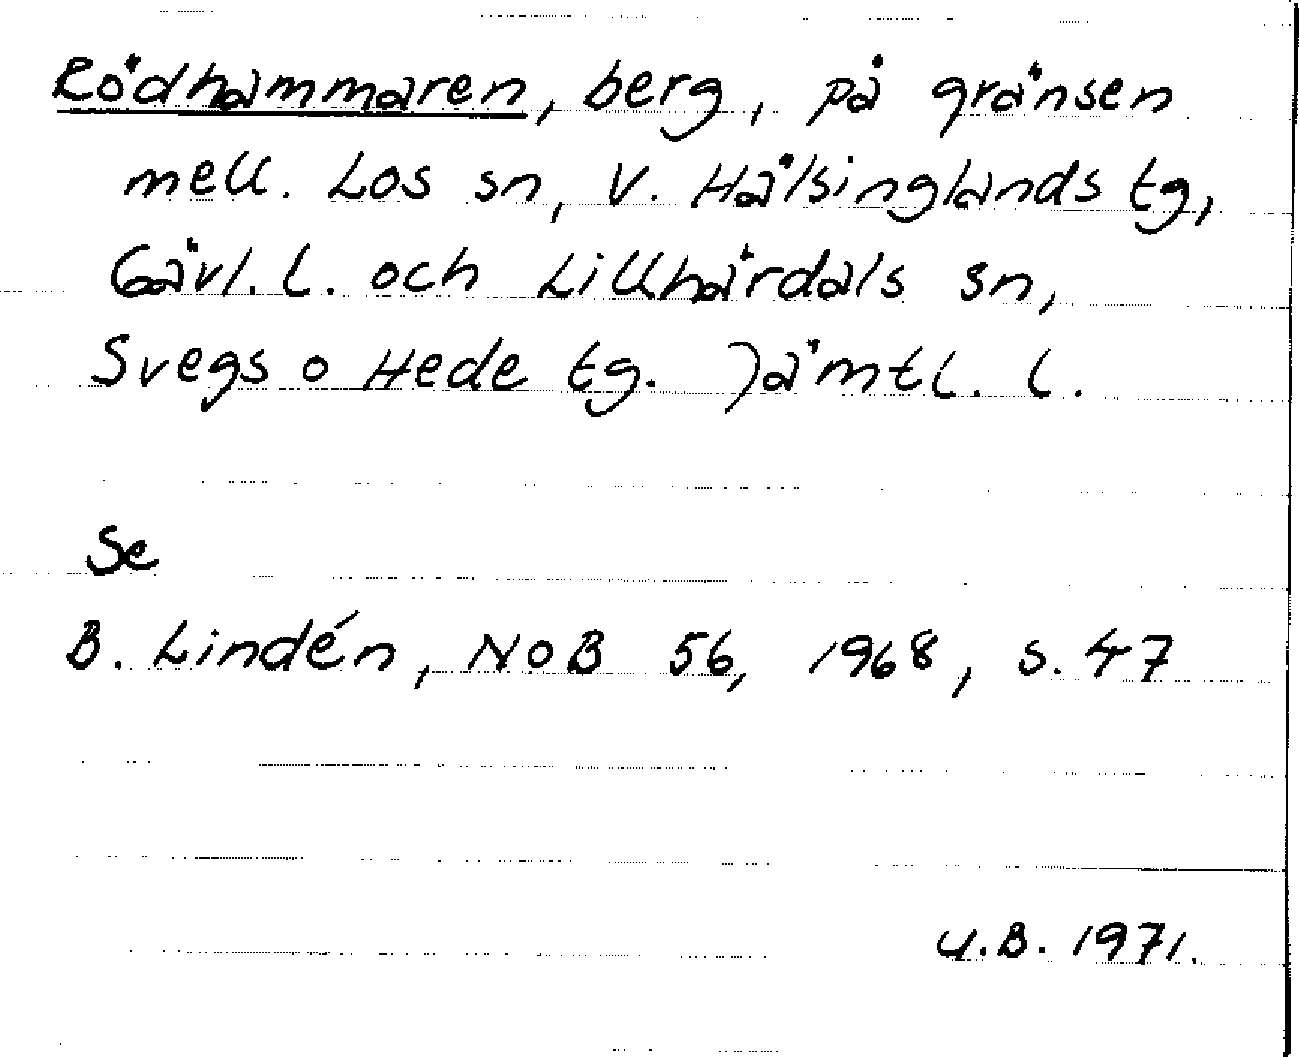 Rödhammaren, berg, på gränsen
mell. Los sn, V. Hälsinglands tg,
Gävl. l. och Lillhärdals sn,
Svegs o Hede tg. Jämtl. l.
Se
B. Lindén, NoB 56, 1968, s. 47
U.B. 1971.